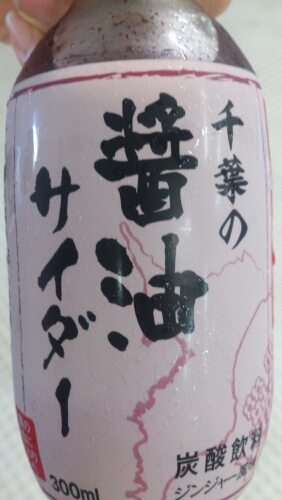 千葉の
醤油
サイダー
炭酸飲料
ジンジャー風味
300ml